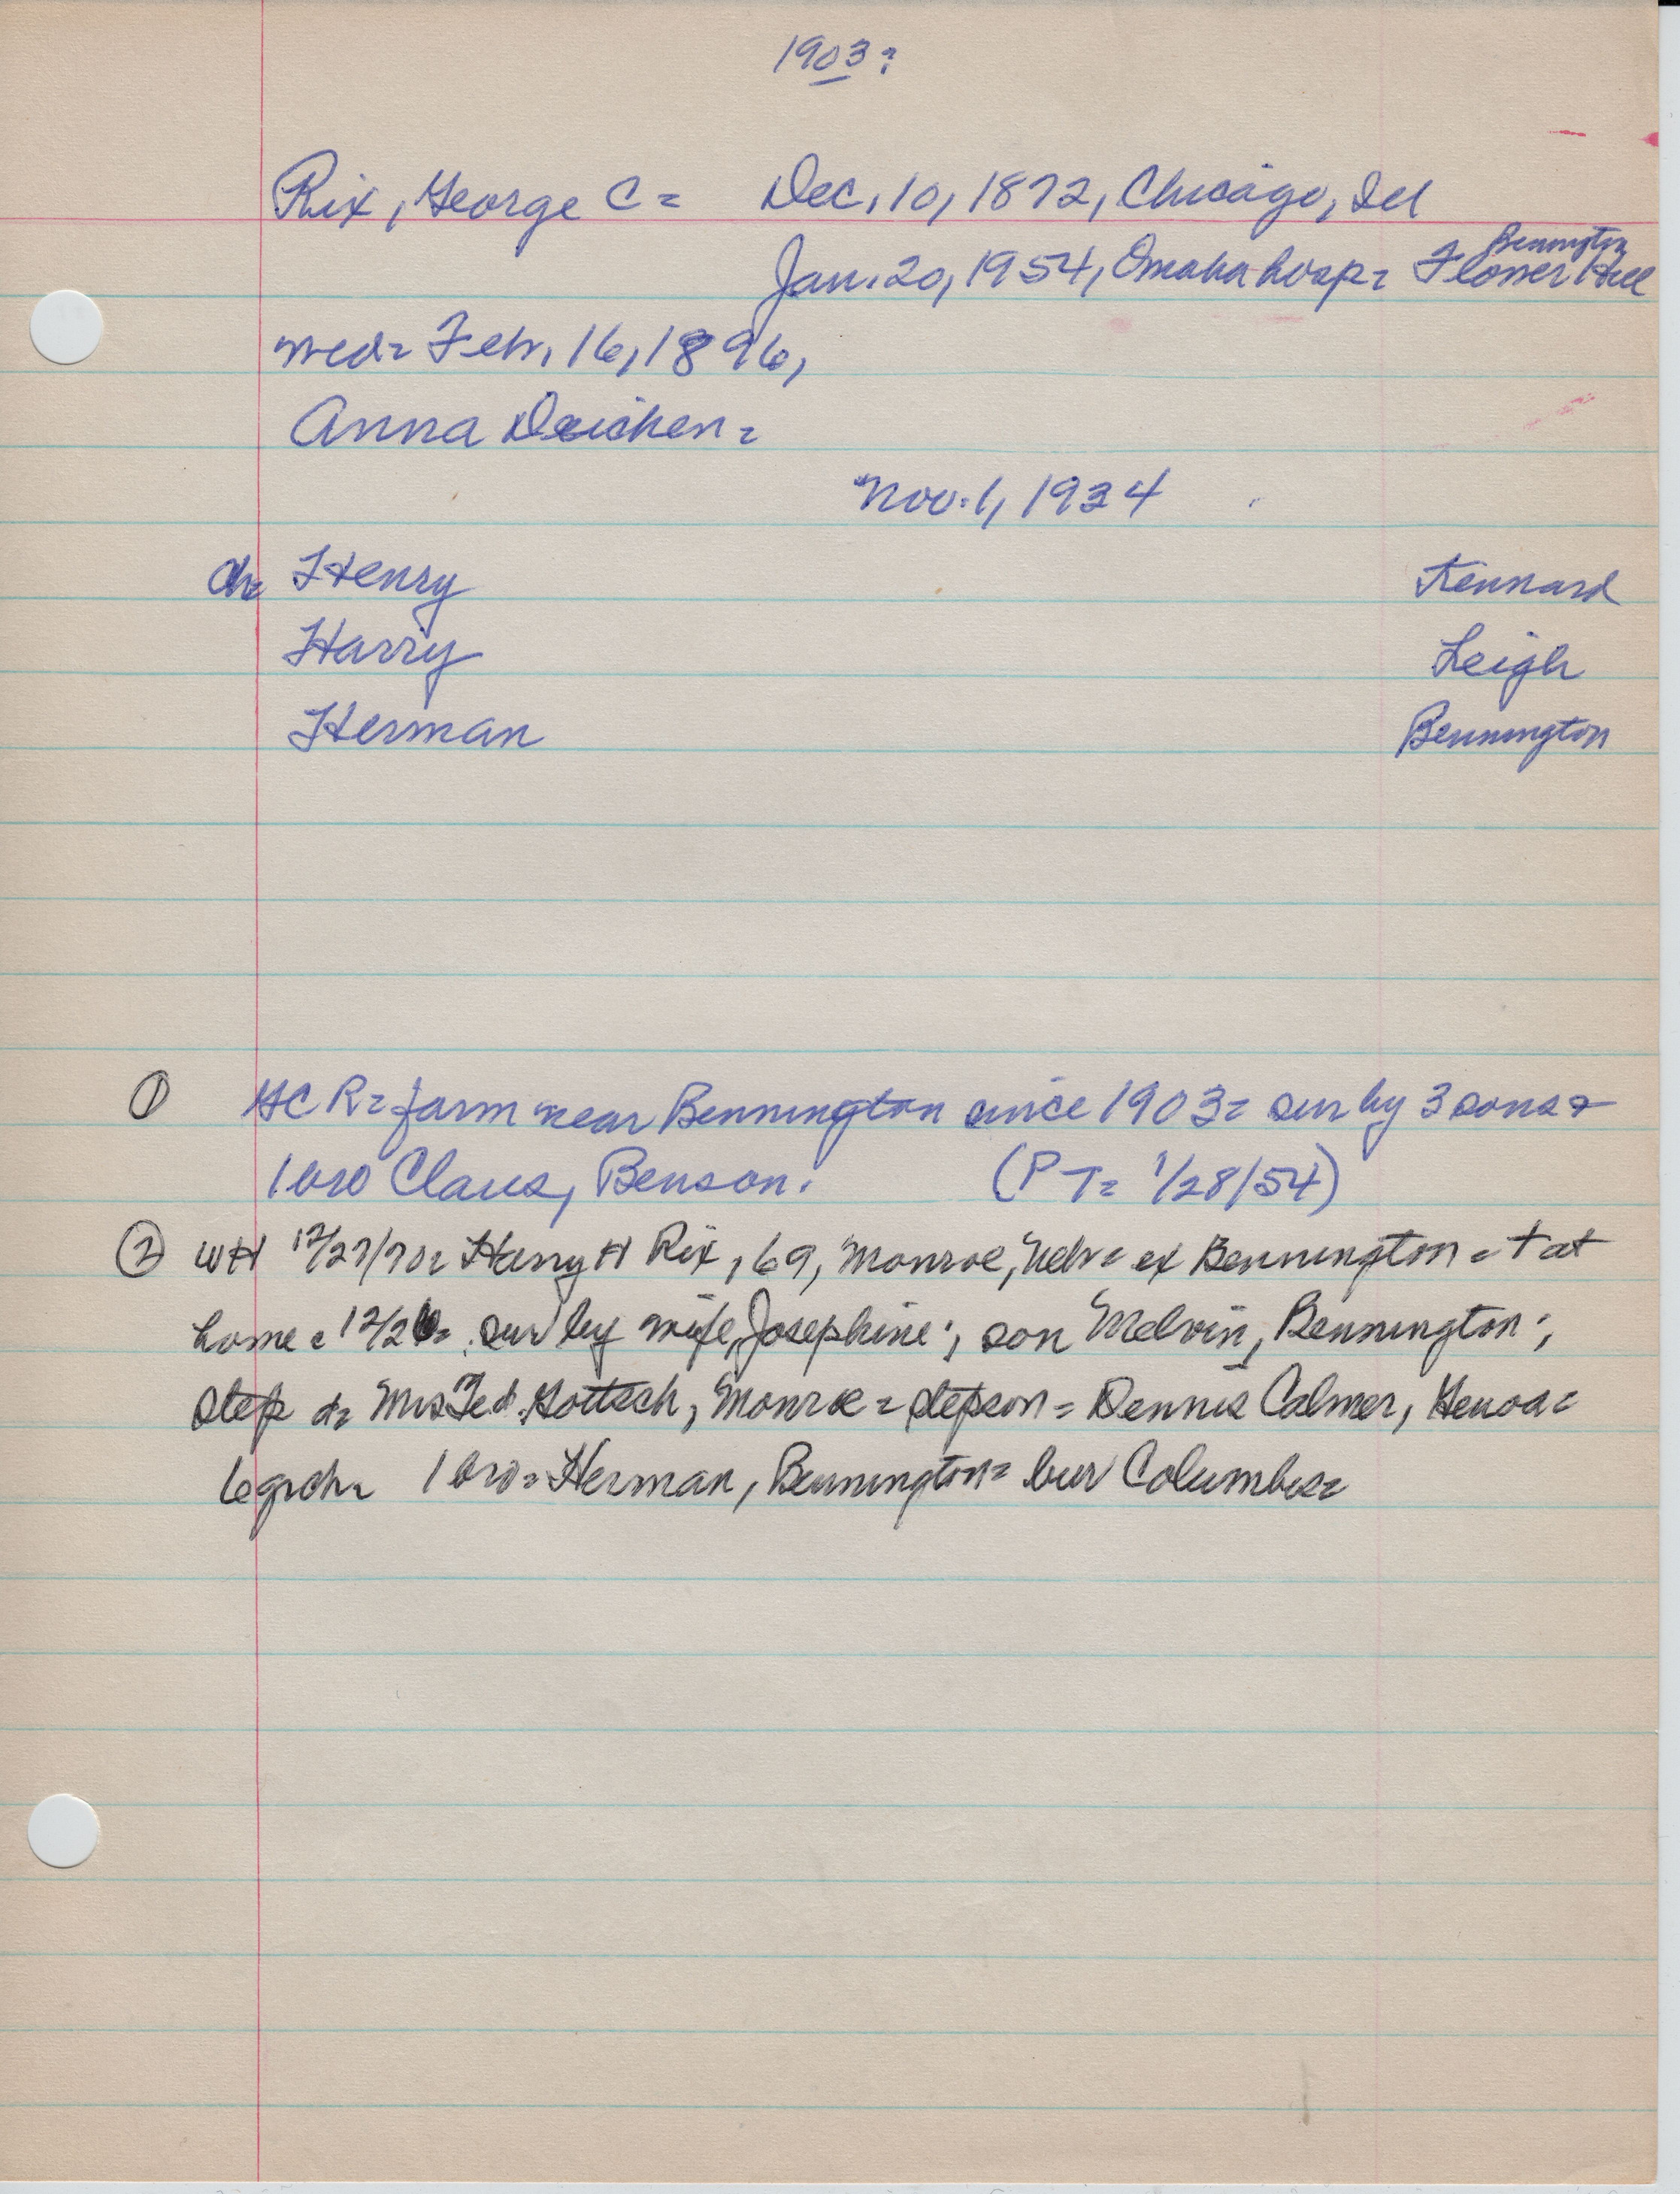 1903?
Rix, George C = Dec. 10, 1872, Chicago, Ill
Bennington
Jan. 20, 1954, Omaha hosp = Flower Hill
med = Feb. 16, 1896,
Anna Deichen =
Nov. 1, 1934
ch = Henry Kennard
Harry Leigh
Herman Bennington
① GC R = farm near Bennington since 1903 = sur by 3 sons &
1 bro Claus, Benson. (PT = 1/28/54)
② WH 12/27/70 = Harry H Rix, 69, Monroe, Nebr = ex Bennington = † at
home = 12/26 = sur by wife, Josephine; son Melvin, Bennington;
step d = Mrs Ted Gottsch, Monroe = stepson = Dennis Calmer, Genoa =
6 grch = 1 bro = Herman, Bennington = bur Columbus =